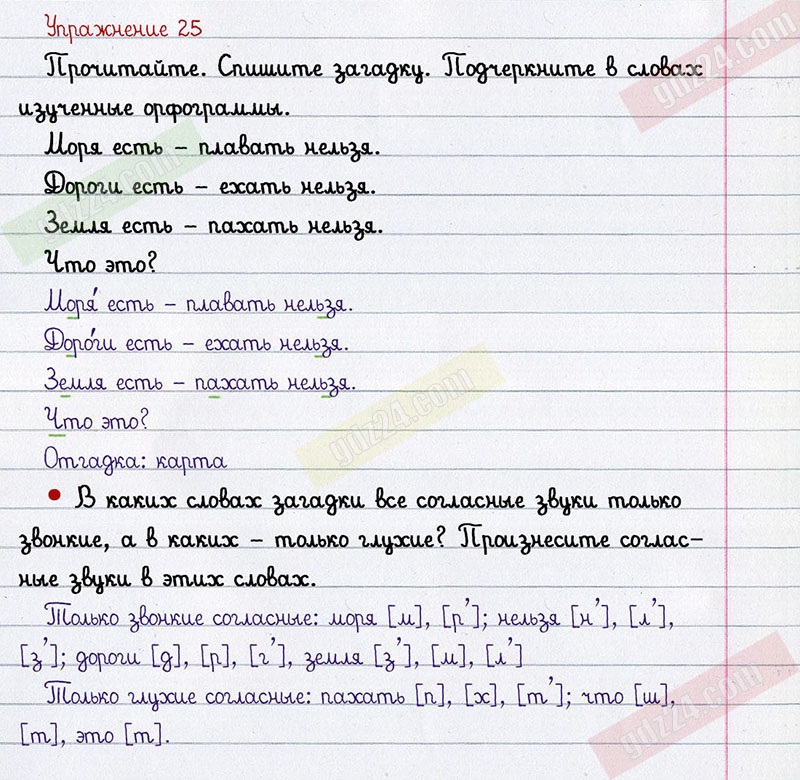 Упражнение 25
Прочитайте. Спишите загадку. Подчеркните в словах
изученные орфограммы.
Моря есть – плавать нельзя.
Дороги есть – ехать нельзя.
Земля есть – пахать нельзя.
Что это?
Моря́ есть – плавать нельзя.
Доро́ги есть – ехать нельзя.
Земля есть – пахать нельзя.
Что это?
Отгадка: карта
• В каких словах загадки все согласные звуки только
звонкие, а в каких – только глухие? Произнесите соглас–
ные звуки в этих словах.
Только звонкие согласные: моря [м], [р’]; нельзя [н’], [л’],
[з’]; дороги [д], [р], [г’], земля [з’], [м], [л’]
Только глухие согласные: пахать [п], [х], [т’]; что [ш],
[т], это [т].
gdz24.com
gdz24.com
gdz24.com
gdz24.com